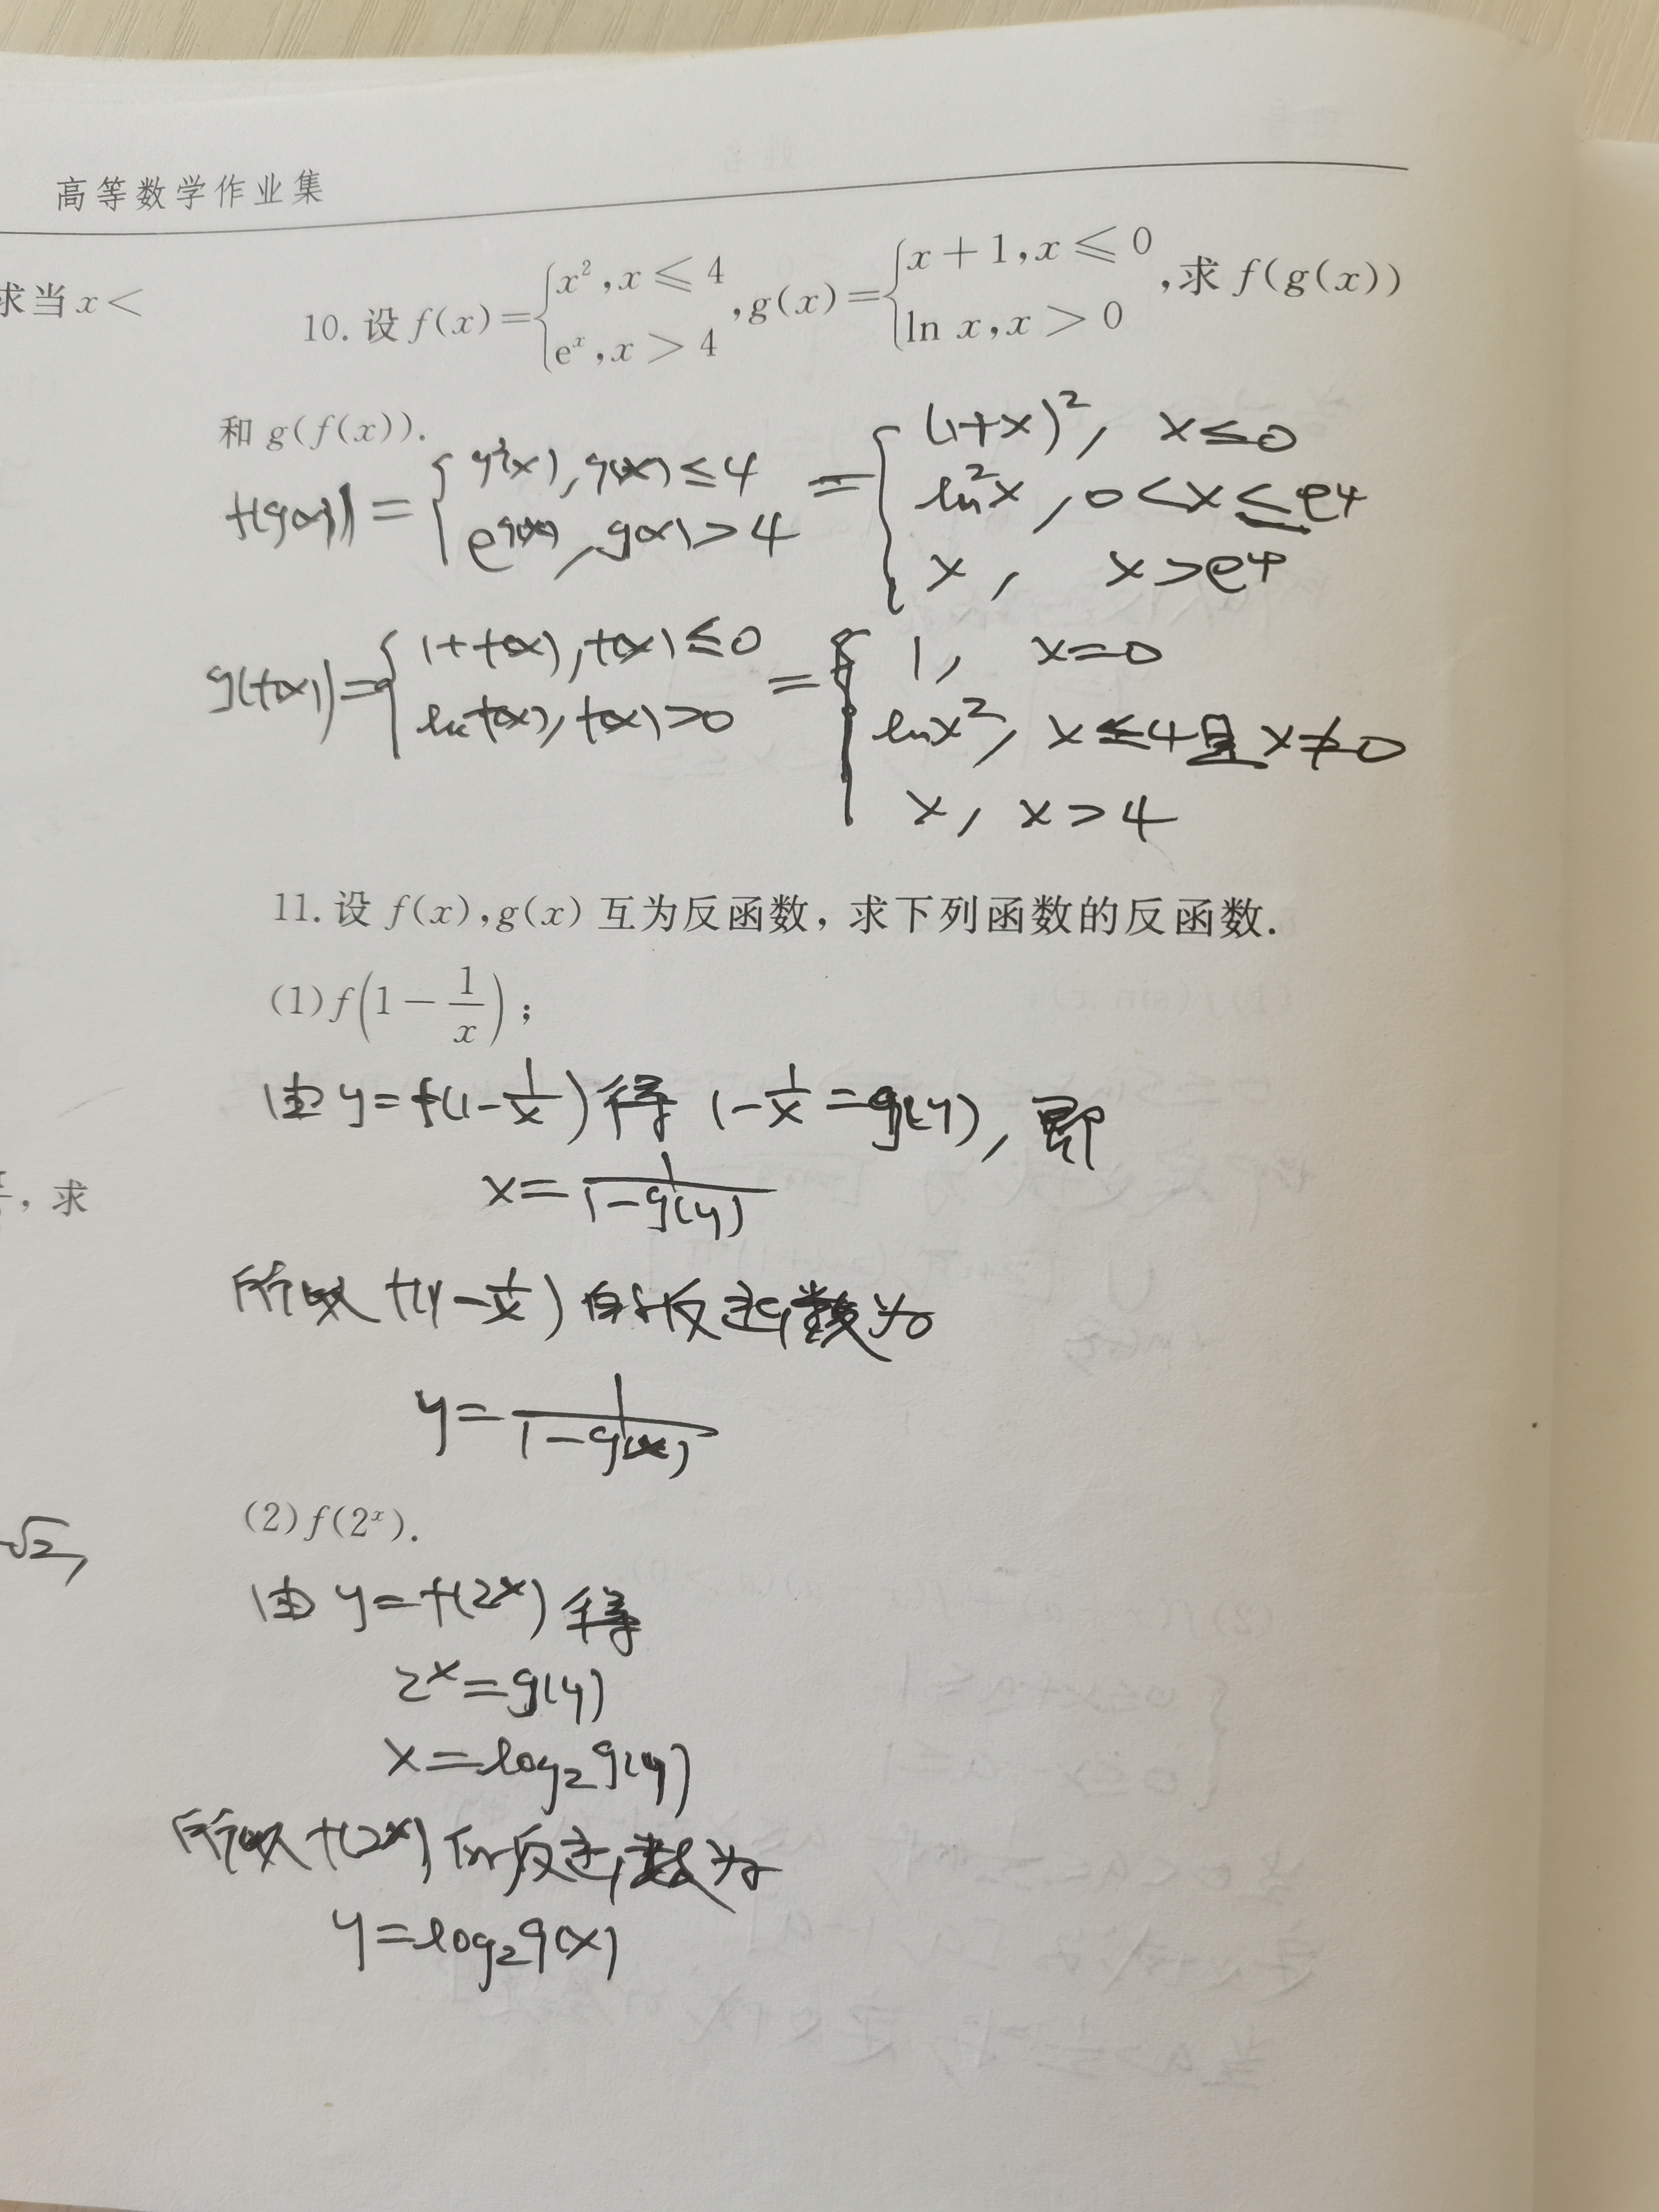 高等数学作业集
求当 x <
10. 设 f(x) = { x², x ⩽ 4 ; eˣ, x > 4 , g(x) = { x + 1, x ⩽ 0 ; ln x, x > 0 , 求 f(g(x))
和 g(f(x)).
f(g(x)) = { g²(x), g(x) ≤ 4 ; e^{g(x)}, g(x) > 4 = { (1+x)², x ≤ 0 ; ln²x, 0 < x ≤ e⁴ ; x, x > e⁴
g(f(x)) = { 1+f(x), f(x) ≤ 0 ; ln f(x), f(x) > 0 = { 1, x = 0 ; ln x², x ≤ 4 且 x ≠ 0 ; x, x > 4
11. 设 f(x), g(x) 互为反函数, 求下列函数的反函数.
(1) f(1 − 1/x);
由 y = f(1 − 1/x) 得 1 − 1/x = g(y), 即
x = 1/(1 − g(y))
, 求
所以 f(1 − 1/x) 的反函数为
y = 1/(1 − g(x))
(2) f(2ˣ).
√2,
由 y = f(2ˣ) 得
2ˣ = g(y)
x = log₂ g(y)
所以 f(2ˣ) 的反函数为
y = log₂ g(x)